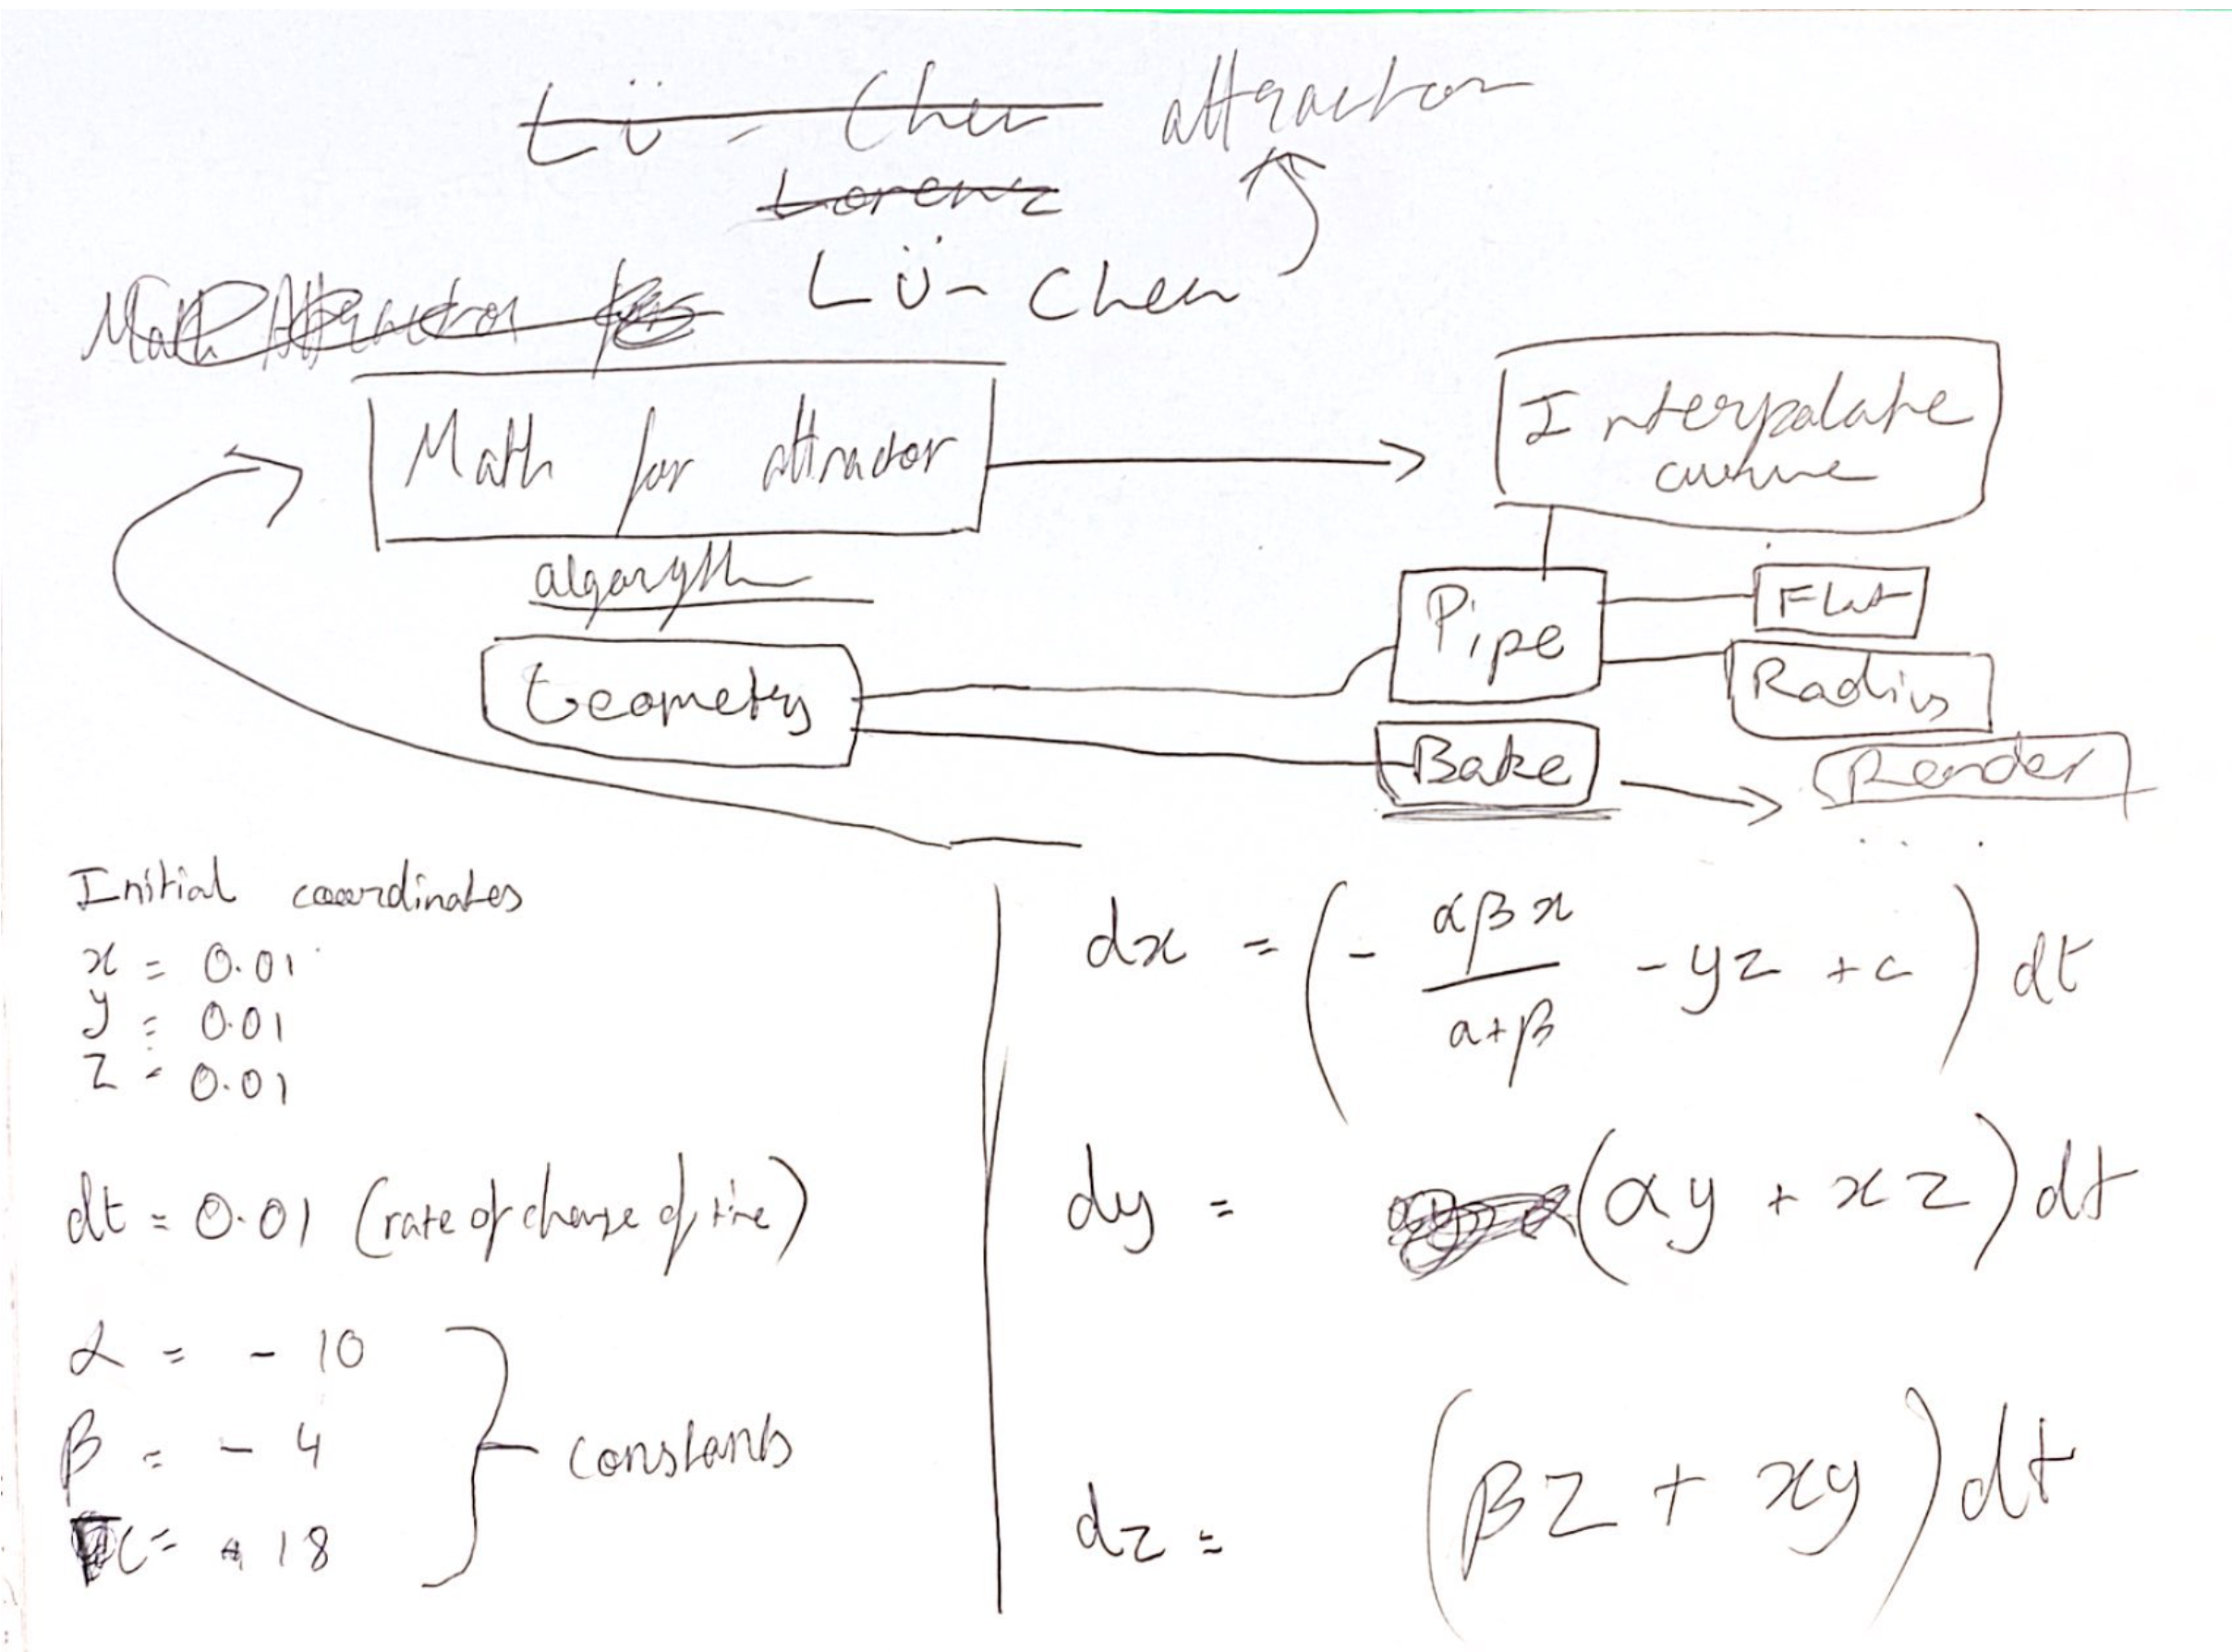 Lü - Chen attractor
Lorenz
Lü - Chen
Math Attractor
Math for attractor
algoryth
Interpolate
curve
Pipe
Flat
Radius
Geometry
Bake
Render
Initial coordinates
x = 0.01
y = 0.01
z = 0.01
dt = 0.01 (rate of change of time)
α = - 10
β = - 4
c = 18
constants
dx = (- αβx / a+β - yz + c) dt
dy = (αy + xz) dt
dz = (βz + xy) dt